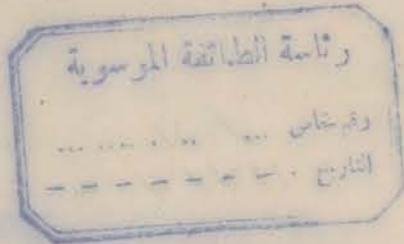 رئاسة الطائفة الموسوية
رقم خاص ... .. . ... ...
التاريخ . - - - - - - -